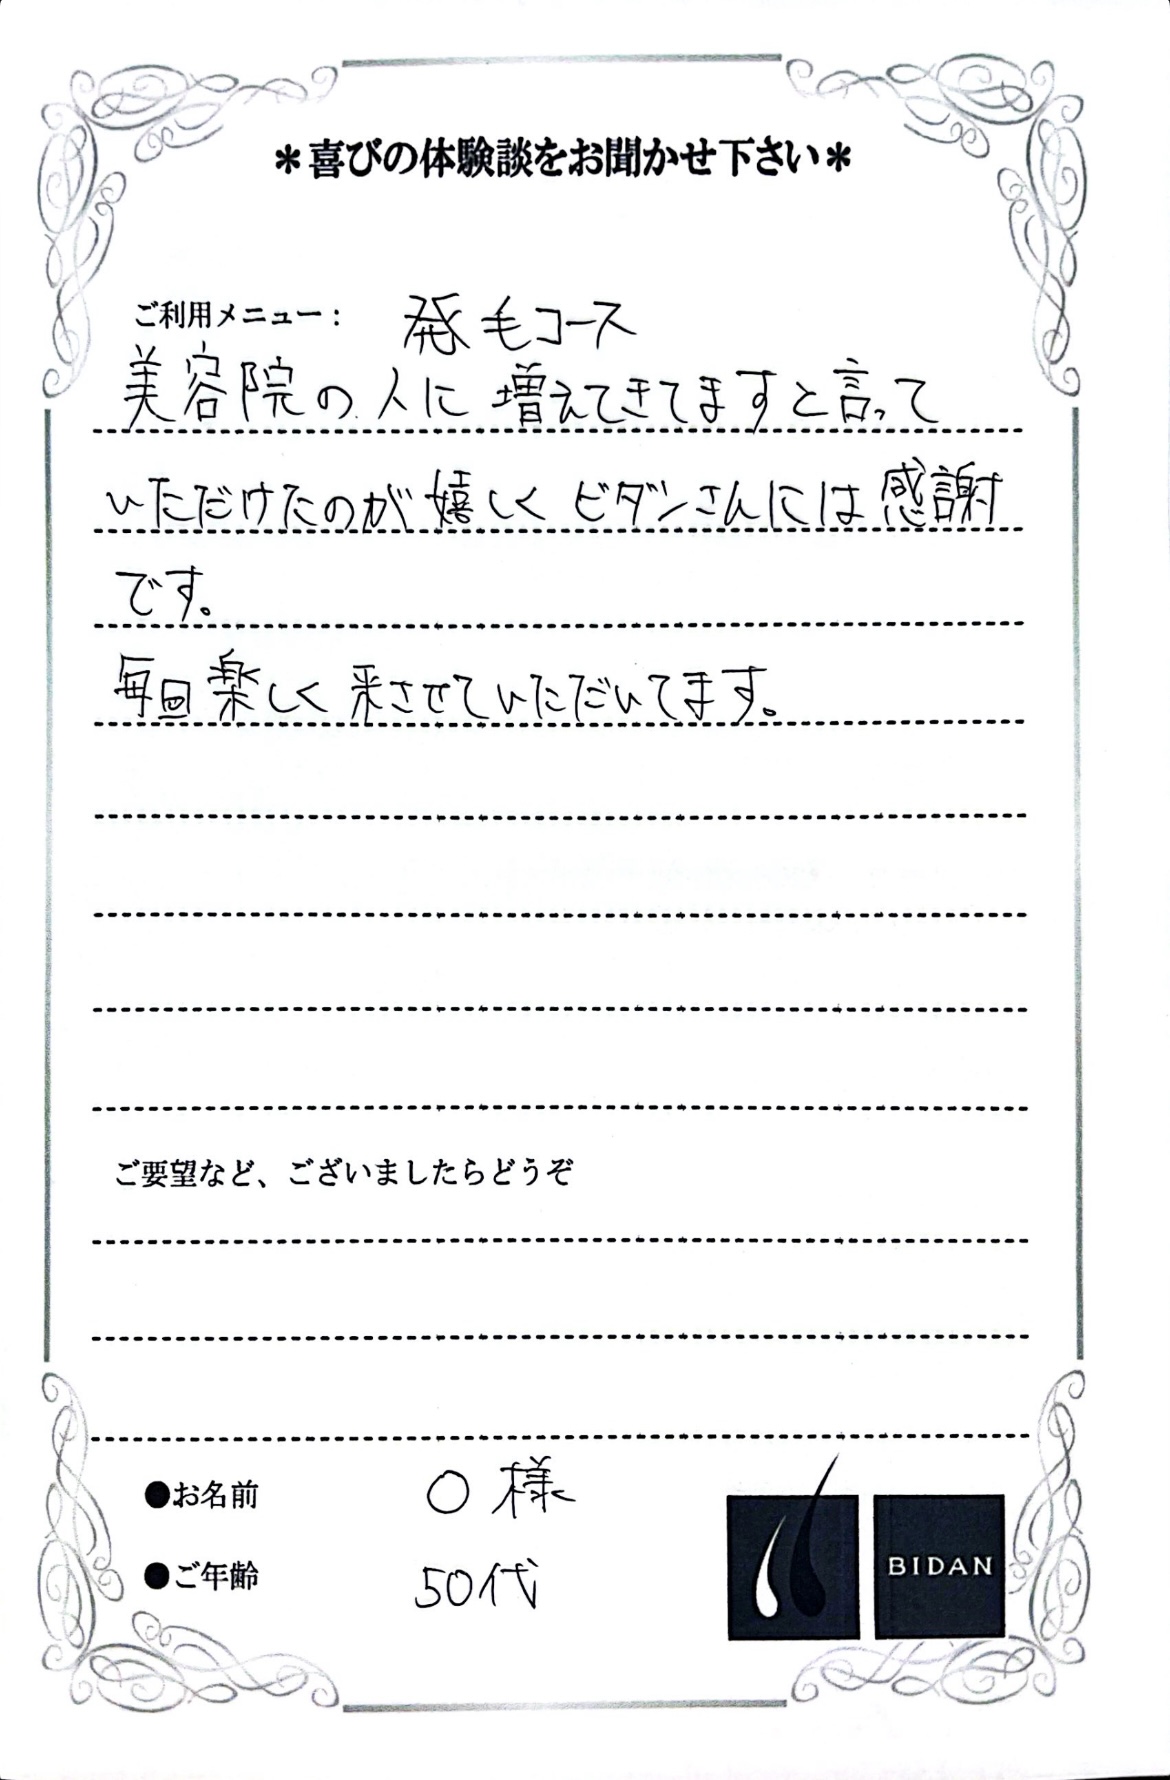 ＊喜びの体験談をお聞かせ下さい＊
ご利用メニュー： 発毛コース
美容院の人に増えてきてますと言って
いただけたのが嬉しくビダンさんには感謝
です。
毎回楽しく来させていただいてます。
ご要望など、ございましたらどうぞ
●お名前 O様
●ご年齢 50代
BIDAN